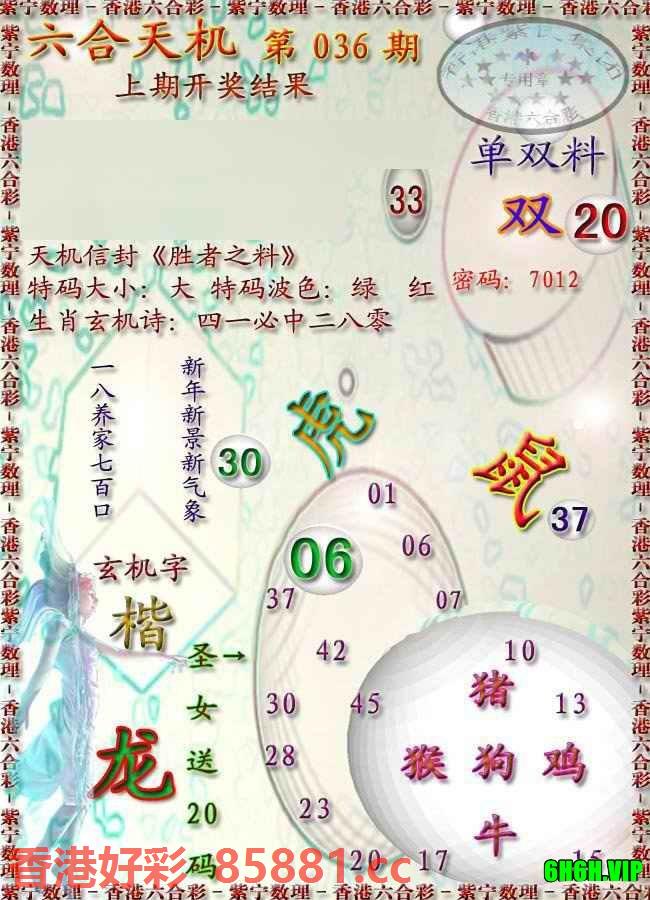 紫宁数理－香港六合彩－紫宁数理－香港六合彩－紫宁数理－香港六合彩
六合天机 第 036 期
上期开奖结果
专用章
香港六合彩
单双料
33
双 20
天机信封《胜者之料》
特码大小: 大 特码波色: 绿 红
密码: 7012
生肖玄机诗: 四一必中二八零
一八养家七百口
新年新景新气象
30
虎
鼠
37
01
06
06
37
07
玄机字
楷
圣女送20码
→
龙
42
10
猪
30
45
13
猴 狗 鸡
28
23
牛
20
17
15
香港好彩 85881.cc
6H6H.VIP
紫宁数理－香港六合彩－紫宁数理－香港六合彩－紫宁数理－香港六合彩